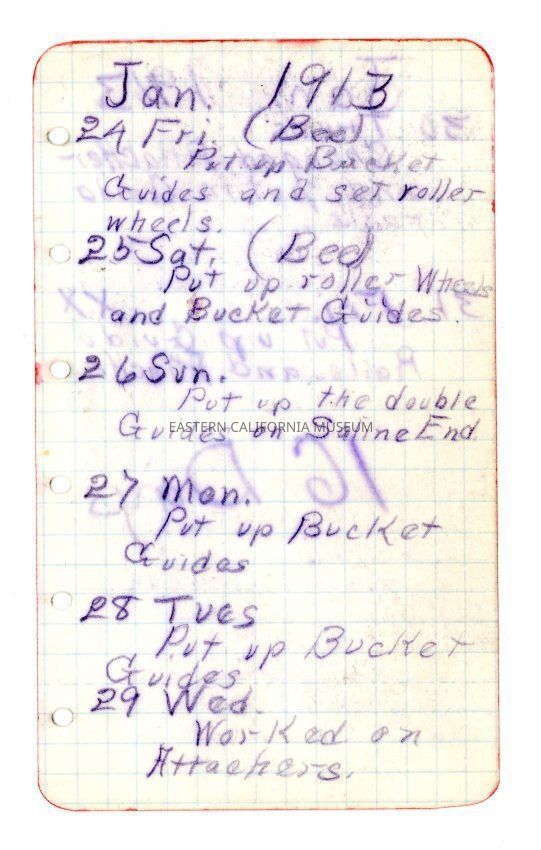 Jan. 1913
24 Fri. (Bee)
Put up Bucket
Guides and set roller
wheels.
25 Sat. (Bee)
Put up roller Wheels
and Bucket Guides.
26 Sun.
Put up the double
Guides on Saline End
EASTERN CALIFORNIA MUSEUM
27 Mon.
Put up Bucket
Guides
28 Tues
Put up Bucket
Guides
29 Wed.
Worked on
Attachers.